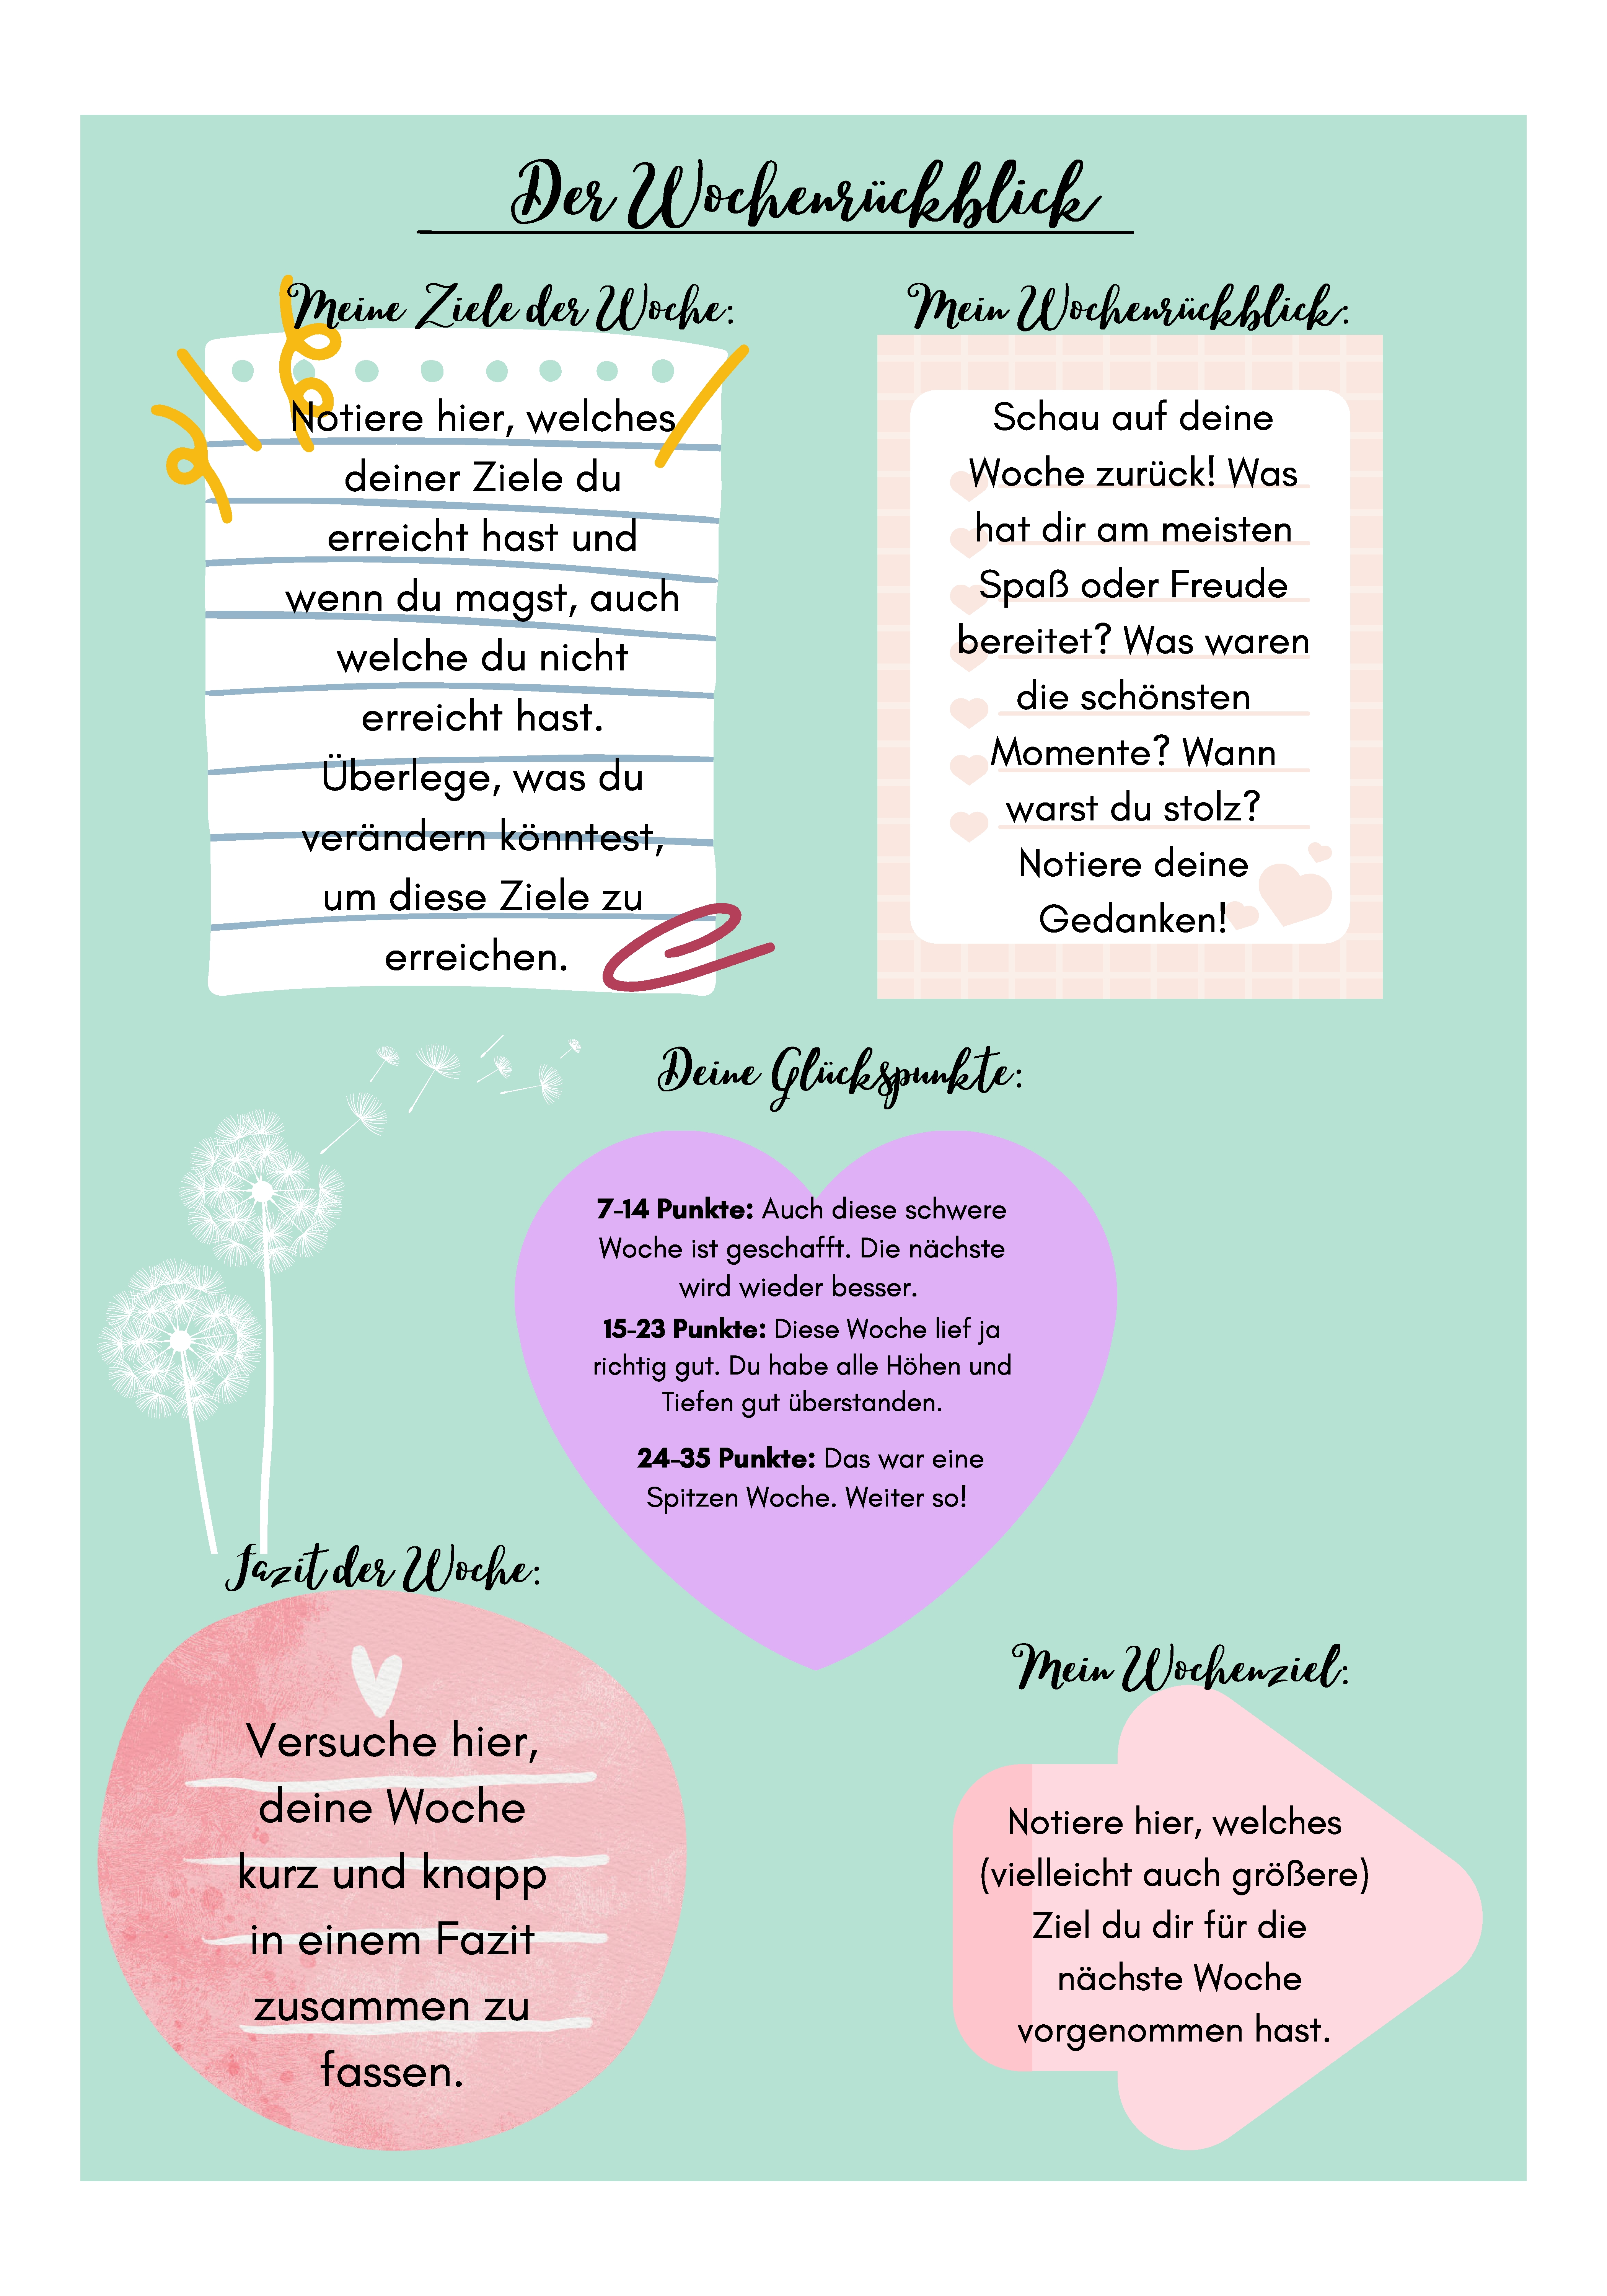 Der Wochenrückblick
Meine Ziele der Woche:
Notiere hier, welches
deiner Ziele du
erreicht hast und
wenn du magst, auch
welche du nicht
erreicht hast.
Überlege, was du
verändern könntest,
um diese Ziele zu
erreichen.
Mein Wochenrückblick:
Schau auf deine
Woche zurück! Was
hat dir am meisten
Spaß oder Freude
bereitet? Was waren
die schönsten
Momente? Wann
warst du stolz?
Notiere deine
Gedanken!
Deine Glückspunkte:
7-14 Punkte: Auch diese schwere
Woche ist geschafft. Die nächste
wird wieder besser.
15-23 Punkte: Diese Woche lief ja
richtig gut. Du habe alle Höhen und
Tiefen gut überstanden.
24-35 Punkte: Das war eine
Spitzen Woche. Weiter so!
Fazit der Woche:
Versuche hier,
deine Woche
kurz und knapp
in einem Fazit
zusammen zu
fassen.
Mein Wochenziel:
Notiere hier, welches
(vielleicht auch größere)
Ziel du dir für die
nächste Woche
vorgenommen hast.